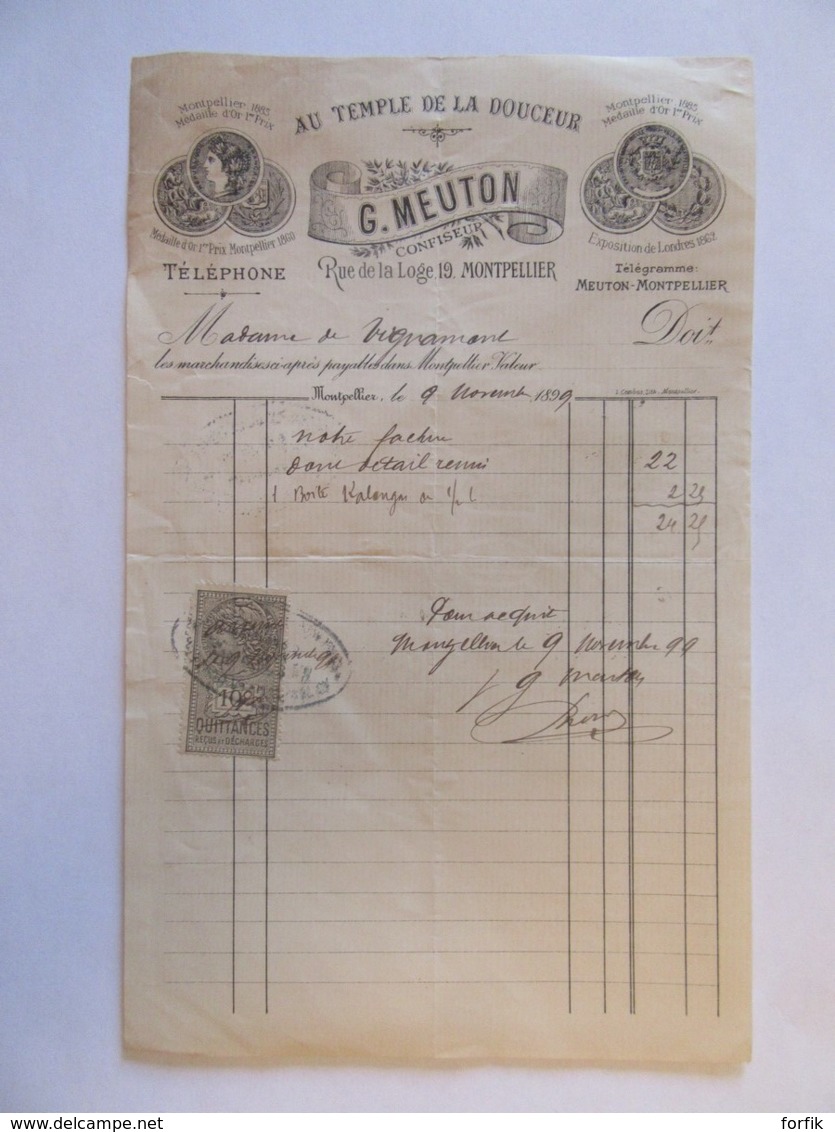 Montpellier 1885
Médaille d'Or 1er Prix
AU TEMPLE DE LA DOUCEUR
Montpellier 1885
Médaille d'Or 1er Prix
G. MEUTON
CONFISEUR
Médaille d'Or 1er Prix Montpellier 1860
Exposition de Londres 1862
TÉLÉPHONE
Rue de la Loge, 19. MONTPELLIER
Télégramme:
MEUTON-MONTPELLIER
Madame de
Doit
les marchandises ci-après payables dans Montpellier Valeur
Montpellier, le 9 Novembre 1899
notre facture
dont détail remis 22
1 Boite 2 25
24 25
Pour acquit
Montpellier le 9 novembre 99
10c
QUITTANCES
REÇUS ET DÉCHARGES
www.delcampe.net
forfik